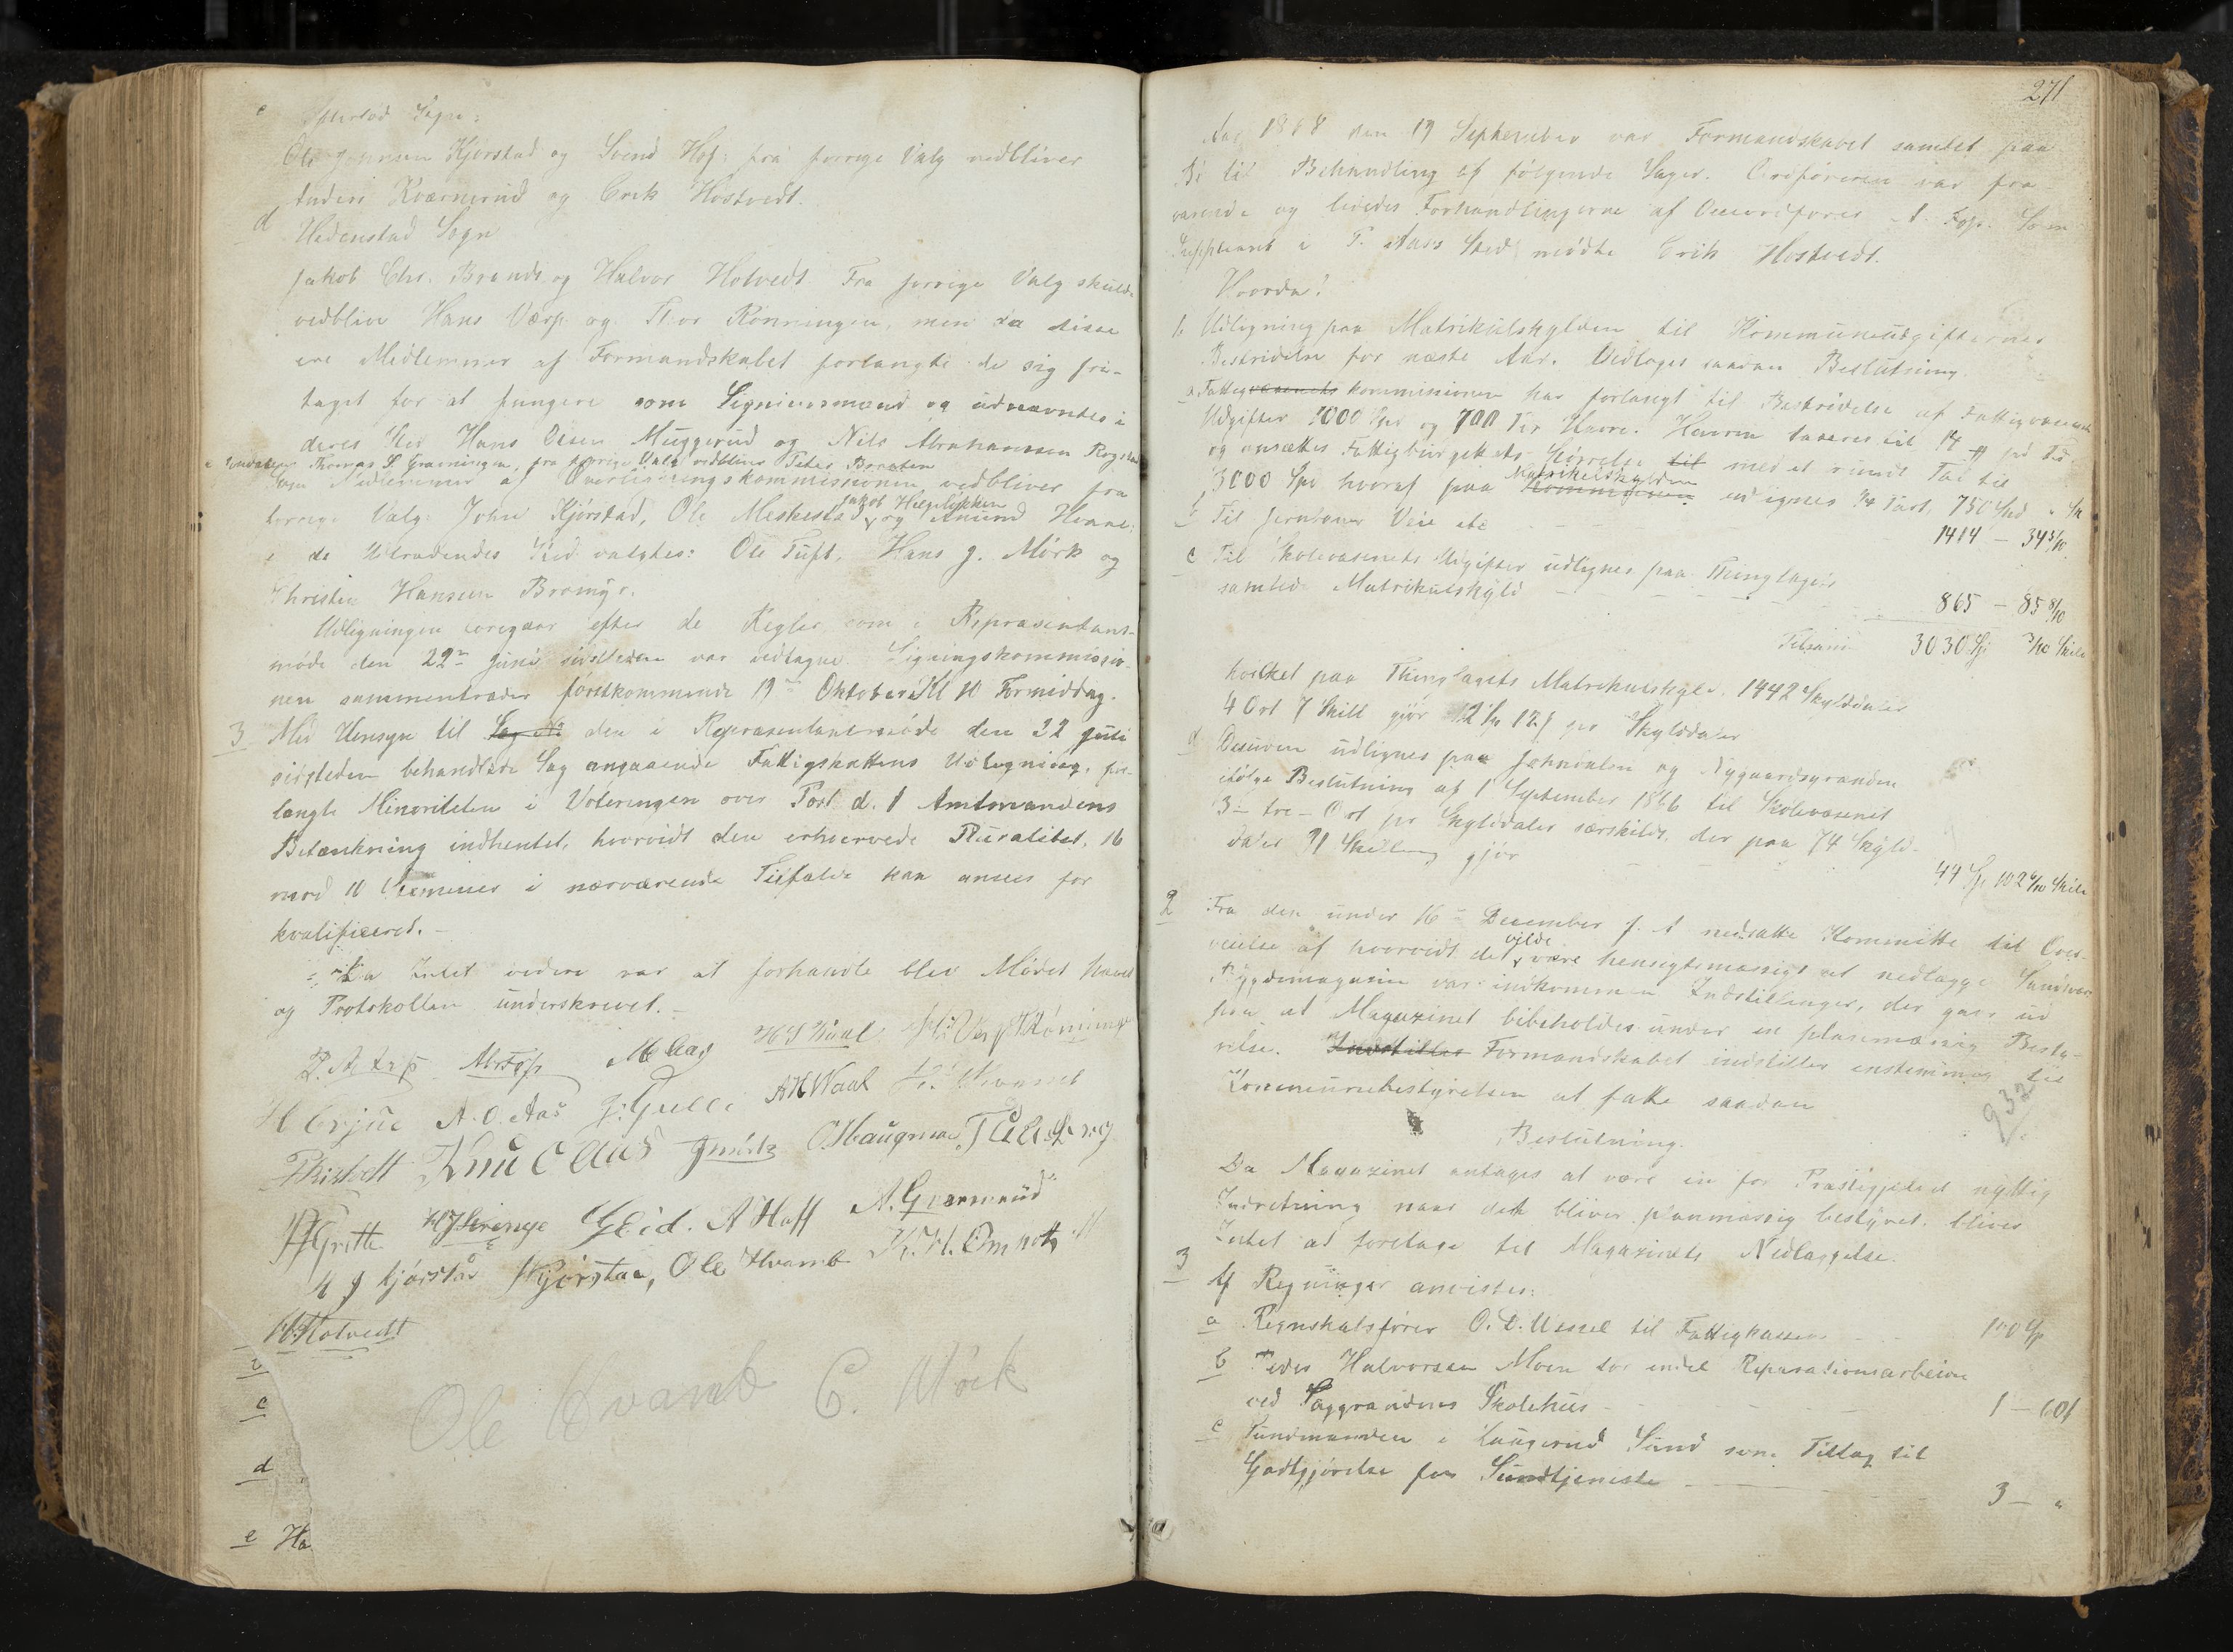 c Sogn:
Ole Kjørstad og Svend Hof; fra forrige Valg vedbliver
Anders Kværnerud og Erik Hostvedt.
d Hedenstad Sogn
Jakob Chr. Brandt og Halvor Hotvedt. Fra forrige Valg skulde
vedblive Hans Værp og Thor Rønningen, men da disse
ere Medlemmer af Formandskabet forlangte de sig fri-
taget for at fungere som Ligningsmænd og udnævntes i
deres Sted Hans Olsen Muggerud og Nils Abrahamsen Rogstad
e Thomas S. Grønningen, fra forrige Valg vedbliver Peter Braaten
Som Medlemmer af Overligningskommissionen vedbliver fra
forrige Valg: John Kjørstad, Ole Meshestad, Jakob Helgeløkken og Amund
i de Udtrædendes Sted valgtes: Ole Tuft, Hans J. Mørk og
Christen Hansen Bromyr.
Udligningen foregaar efter de Regler som i Repræsentant-
møde den 22de Juni sidstleden var vedtagne. Ligningskommissio-
nen sammentræder førstkommende 19de Oktober Kl 10 Formiddag.
3 Med Hensyn til den i Repræsentantermøde den 22 Juni
sidstleden behandlede Sag angaaende Fattigskattens Udligning, for-
langte Minoriteten i Voteringen over Post d. 1 Amtmandens
Betænkning indhentet, hvorvidt den erhvervede Pluralitet, 16
mod 10 Stemmer i nærværende Tilfælde kan ansees for
kvalificeret. -
Da Intet videre var at forhandle blev Mødet hævet
og Protokollen underskrevet. -
H A. O. Aas AHWaal
Knud Claus
A Hoff
H J Kjørstad Kjørstad, Ole Hvamb
HHotvedt
b
c
d
e Ha
Ole Hvamb C. Mørk
271
Aar 1868 den 19 September var Formandskabet samlet paa
Bé til Behandling af følgende Sager. Ordføreren var fra-
værende og lededes Forhandlingerne af Viceordfører A. Foss. Som
Suppleant i P. Aas's Sted mødte Erik Hostvedt.
Hvorda!
1. Udligning paa Matrikulskylden til Kommuneudgifternes
Bestridelse for næste Aar. Vedtoges saadan Beslutning.
a Fattigvæsenets kommissionen har forlangt til Bestridelse af Fattigvæsenets
Udgifter 2000 Spd og 700 Tdr Havre. Havren taxeres til 14 pd Td.
og ansættes Fattigbudgettets Størrelse til med et rundt Tal til
3000 Spd hvoraf paa Matrikulskylden Kommunen udlignes 1/4 Part, 750 Spd " Sk
b Til Veie etc 1414 - 34 5/10
c Til Skolevæsenets Udgifter udlignes paa Thinglagets
samlede Matrikulskyld 865 - 85 8/10
Tilsam. 3030 Sp 3/10 Skill
hvilket paa Thinglagets Matrikulskyld, 1442 Skylddaler
4 Ort 7 Skill gjør 2 Sp 12 pr Skylddaler
d Desuden udlignes paa Jondalen og Nygaardsgrænden
ifølge Beslutning af 1 September 1866 til Skolevæsenet
3 - tre - Ort pr Skylddaler særskilt, der paa 74 Skyld-
daler 91 Skilling gjør 44 Sp 102 4/10 Skill
2 Fra den under 16de December f. A nedsatte Kommitte til Over-
veielse af hvorvidt det vilde være hensigtsmæssigt at nedlægge Sandsvær
Bygdemagasin var indkommen Indstillinger, der gaar ud
paa at Magazinet bibeholdes under en planmæssig Besty-
relse. Indstilles Formandskabet indstiller enstemmig til
Kommunebestyrelsen at fatte saadan
932
Beslutning.
Da Magazinet antages at være en for Præstegjeldet nyttig
Indretning naar det bliver planmæssig bestyret, bliver
Intet at foretage til Magazinets Nedlæggelse.
3 Af Regninger anvistes:
a Regnskabsfører O. D. Wessel til Fattigkassen 100 Sp
b Peder Halvorsen Moen for endel Reparationsarbeide
ved Skolehus 1 - 60
c Sundmanden i Laugerud Sund som Tillæg til
Godtgjørelse for Sundtjeneste 3 - "